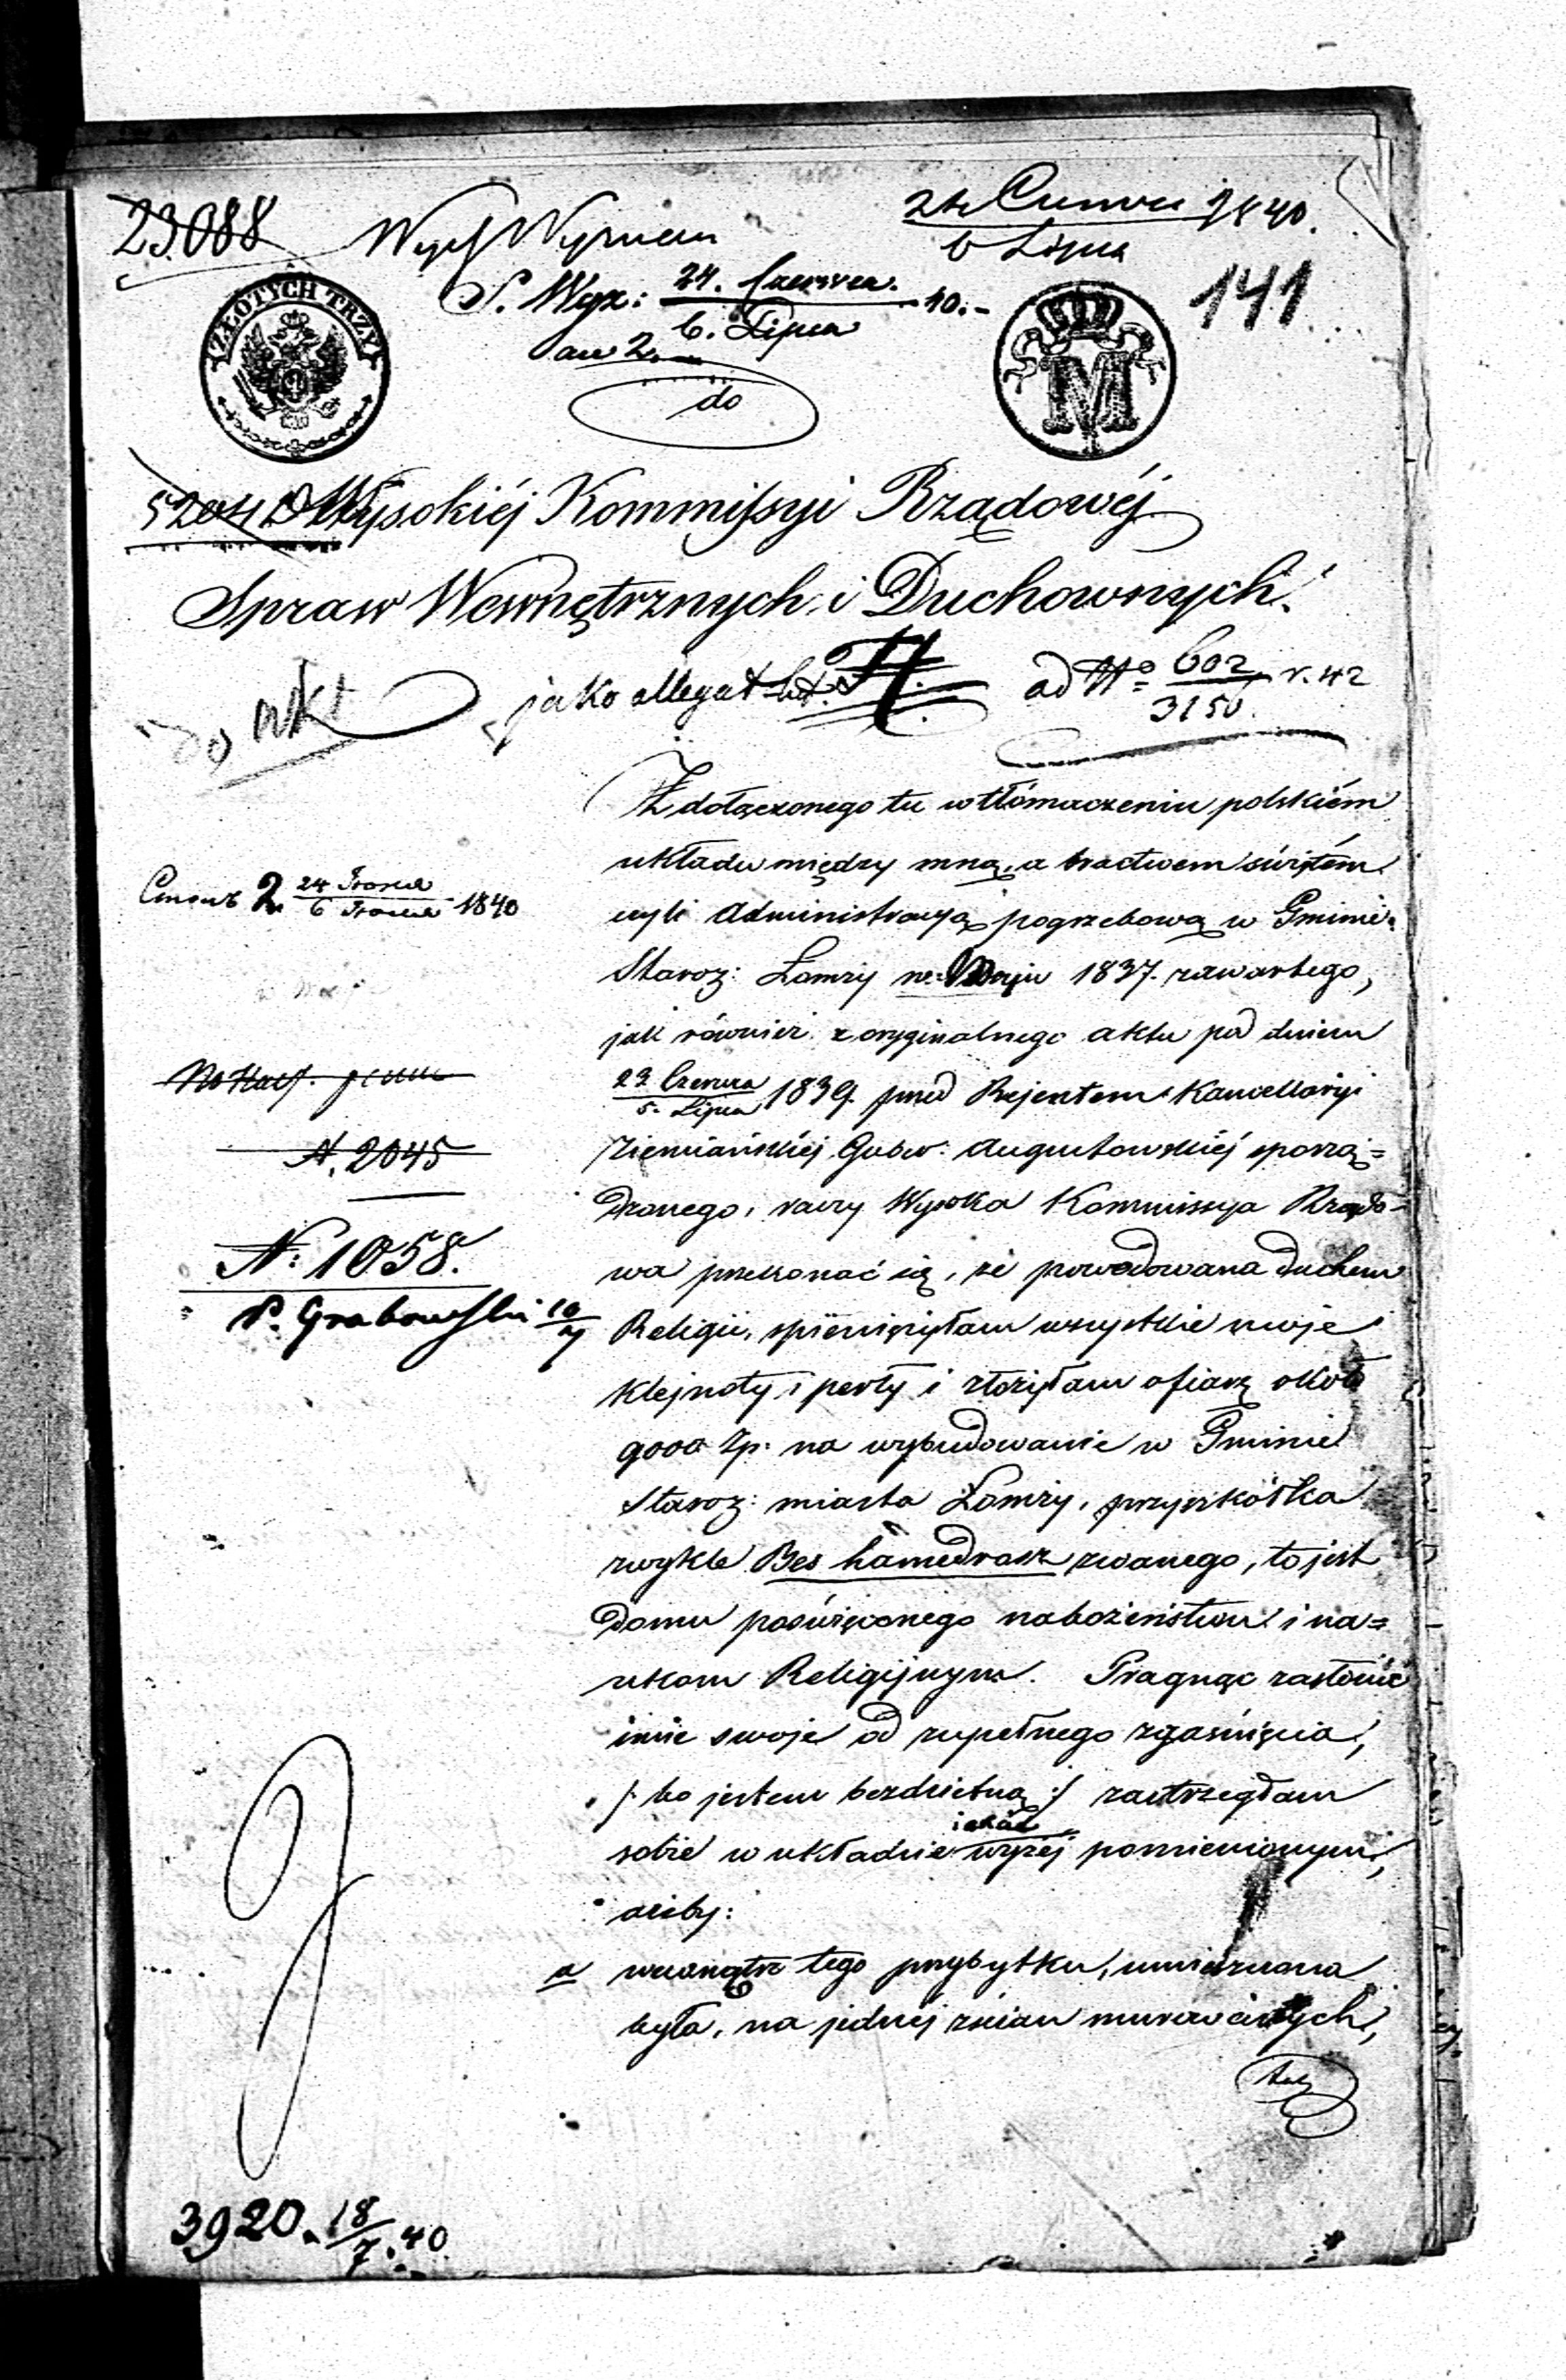 23088
24 Czerwca 1840.
6 Lipca
141
P. Wyx: 24. Czerwca. 40.-
6. Lipca
ZŁOTYCH TRZY
M
do
Wysokiéj Kommissyi Rządowéj
Spraw Wewnętrznych i Duchownych.
do akt
jako allegat lit. A.
ad No 602 r. 42
3150.
Z dołączonego tu w tłómaczeniu polskiém
układu między mną, a bractwem świętém
czyli Administracyą pogrzebową w Gminie
Staroz: Łomży w Maju 1837. zawartego,
jak również z oryginalnego aktu pod dniem
23 Czerwca
5. Lipca 1839. przed Rejentem Kancellaryi
Ziemiańskiéj Guber: Augustowskiéj sporzą=
dzonego, raczy Wysoka Kommissya Rządo=
wa przekonać się, że powodowana duchem
Religii, spieniężyłam wszystkie swoje
klejnoty i perły i złożyłam ofiarę około
9000 Zp. na wybudowanie w Gminie
Staroz: miasta Łomży, przyszkółka
zwykle Bes hamedrasz zwanego, to jest
domu poświęconego nabożeństwu i na=
ukom Religijnym. Pragnąc zasłonić
imie swoje od zupełnego zgaśnięcia,
/: bo jestem bezdzietną :/ zastrzegłam
sobie w układzie wyżéj pomienionym,
ażeby:
a wewnątrz tego przybytku, umieszczona
była, na jednéj z ścian murowanych,
1840
N. 2045
N: 1058.
P. Grabowski 10/7
3920. 18/7 40